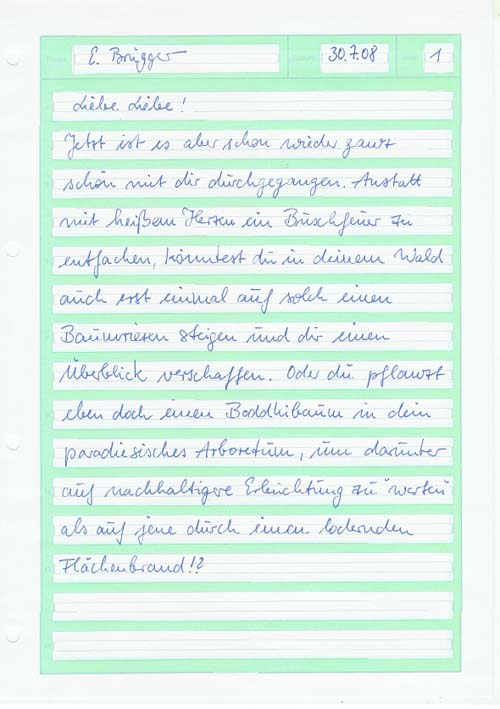 E. Brügger 30.7.08 1
Liebe Liebe!
Jetzt ist es aber schon wieder ganz
schön mit dir durchgegangen. Anstatt
mit heißem Herzen ein Buschfeuer zu
entfachen, könntest du in deinem Wald
auch erst einmal auf solch einen
Baumriesen steigen und dir einen
Überblick verschaffen. Oder du pflanzt
eben doch einen Boddhibaum in dein
paradiesisches Arboretum, um darunter
auf nachhaltigere Erleuchtung zu "warten"
als auf jene durch einen lodernden
Flächenbrand!?